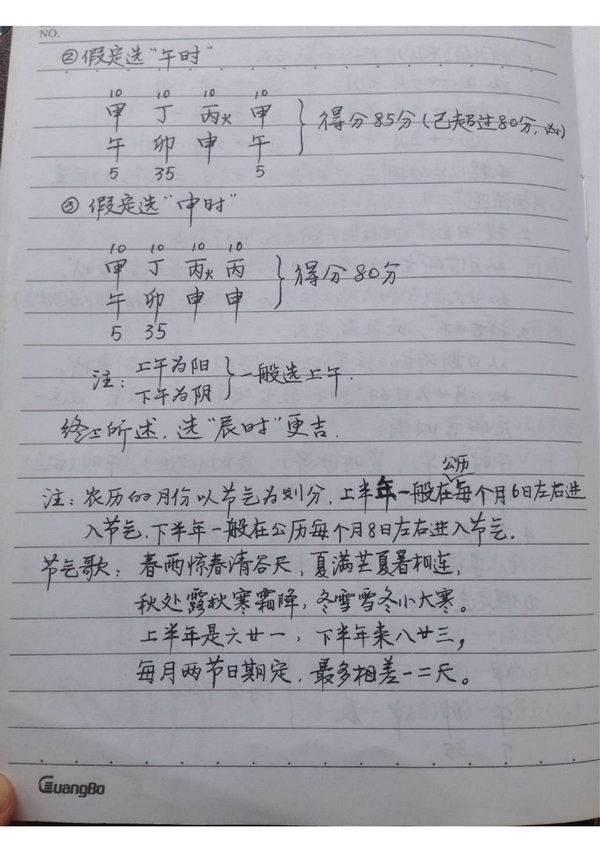 NO.
②假定选“午时”
10 10 10 10
甲 丁 丙火 甲
午 卯 申 午
5 35 5
得分85分(已超过80分,凶)
③假定选“申时”
10 10 10 10
甲 丁 丙火 丙
午 卯 申 申
5 35
得分80分
注:上午为阳
下午为阴
一般选上午.
终上所述,选“辰时”更吉.
注:农历的月份以节气为划分,上半年一般在公历每个月6日左右进
入节气,下半年一般在公历每个月8日左右进入节气。
节气歌:春雨惊春清谷天,夏满芒夏暑相连,
秋处露秋寒霜降,冬雪雪冬小大寒。
上半年是六廿一,下半年来八廿三,
每月两节日期定,最多相差一二天。
GuangBo